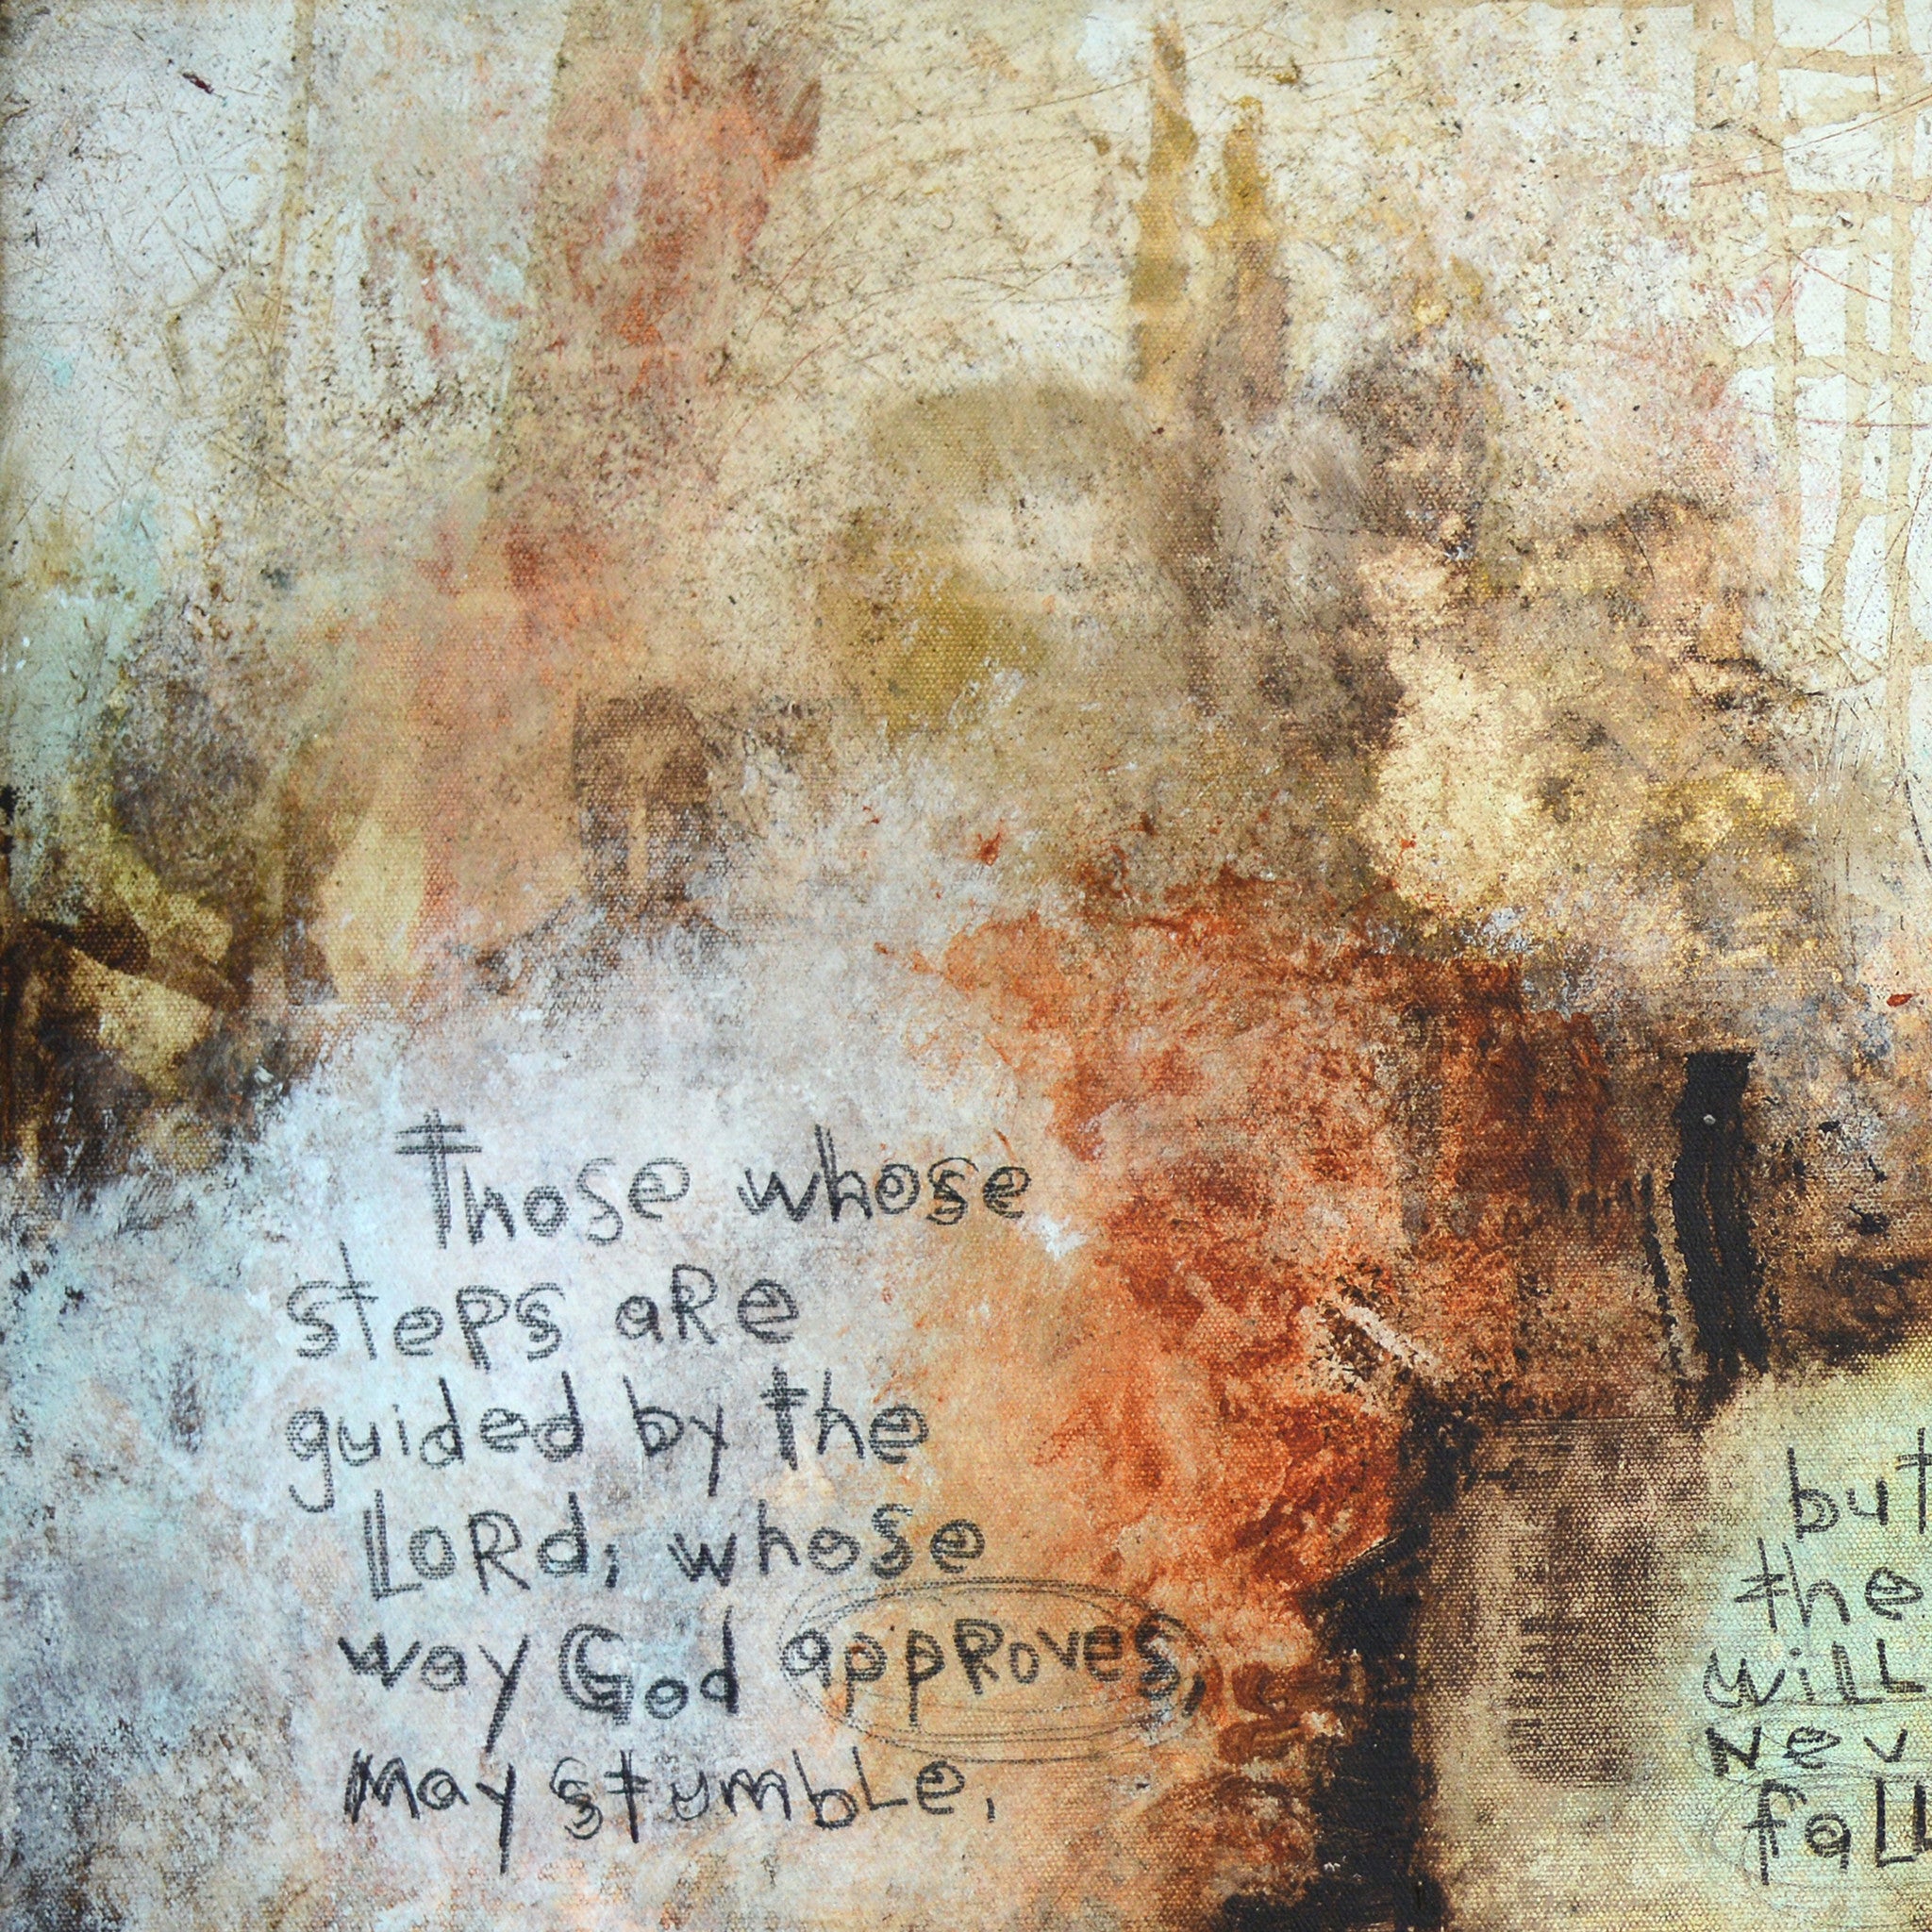 Those whose
steps are
guided by the
Lord, whose
way God approves,
May stumble,
but
the
will
Nev
fall